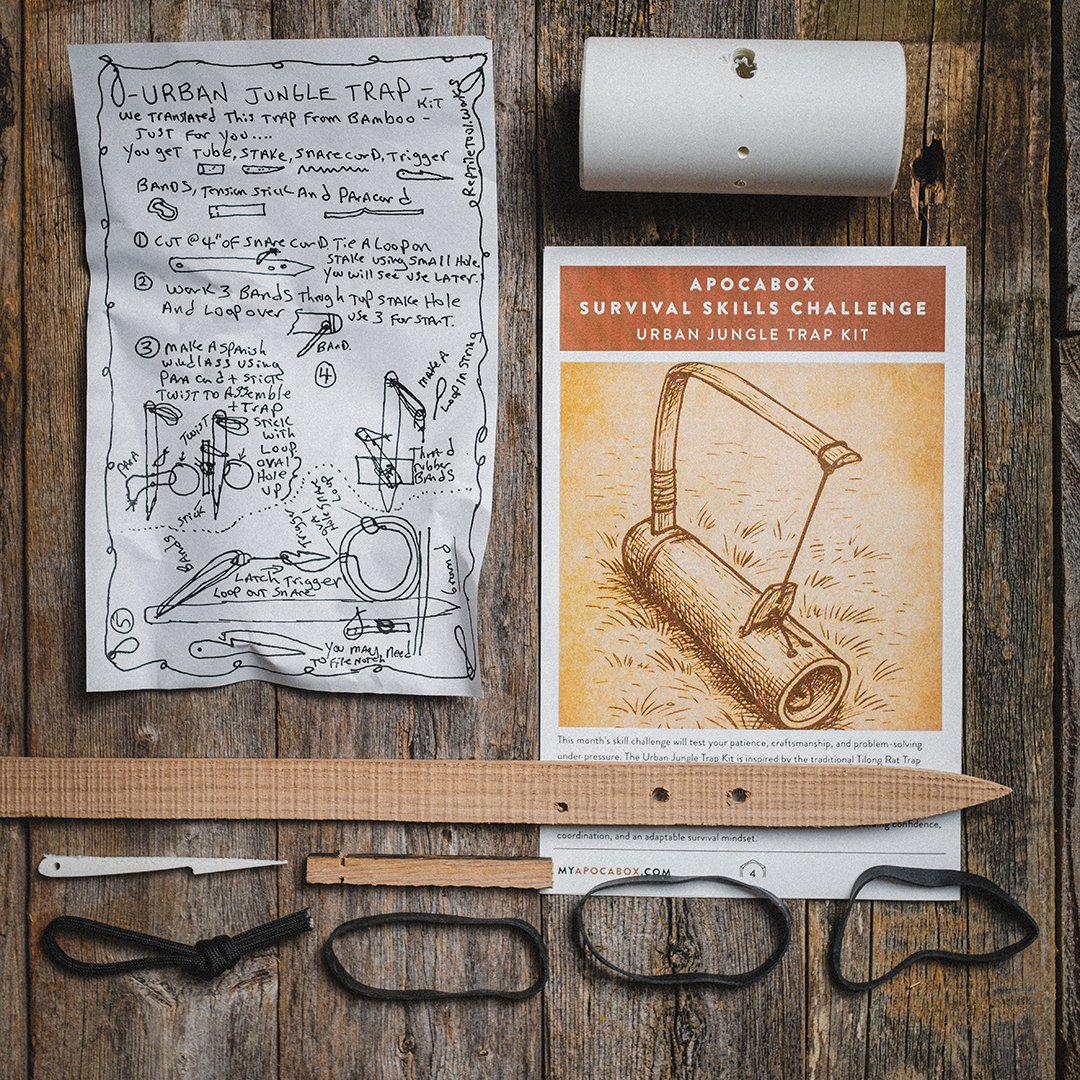 -URBAN JUNGLE TRAP-
KIT
We TRANSlATED This TRAP FROM BAMBOO -
JUST FOR YOU....
You geT TuBe, STAKE, SNAReCorD, Trigger
BANDS, TENSION STICK AND PARAcord
ReptileTool.Works
① CUT @ 4" OF SNARe CorD Tie A Loop on
STAKE using SMAll Hole.
You will see use LATer.
② Work 3 BANDS Through Top STAKE Hole
And Loop over
use 3 For STArT.
BAND.
③ MAKE A SPANISH
windlASS using
PArA Cord + STICK
TWIST To ASSemble
+ TRAP
④
MAKe A
Loop IN STring
PArA
TWIST
STick
with
Loop
OVAl
Hole
UP
STICK
Rubber
BANDS
BANDS
Trigger
Loop
LATCH Trigger
Loop OUT SNAre
Ground
⑤
You may need
To File NoTch
APOCABOX
SURVIVAL SKILLS CHALLENGE
URBAN JUNGLE TRAP KIT
This month's skill challenge will test your patience, craftsmanship, and problem-solving
under pressure. The Urban Jungle Trap Kit is inspired by the traditional Tilong Rat Trap
confidence,
coordination, and an adaptable survival mindset.
MYAPOCABOX.COM
4